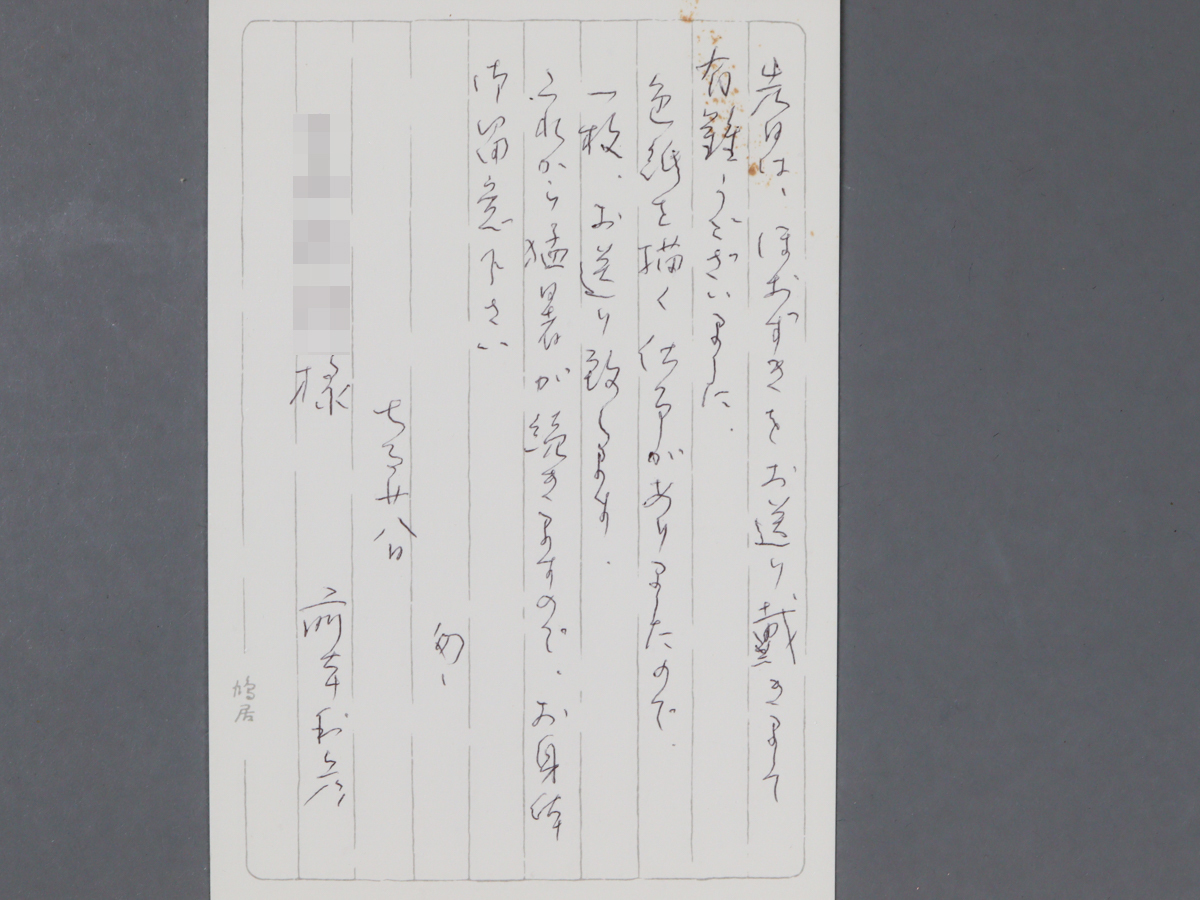 先日は、ほおずきをお送り戴きまして
有難うございました.
色紙を描く仕事がありましたので.
一枚、お送り致します.
これから猛暑が続きますので、お身体
御留意下さい
匆々
七月廿八日
様
前本利彦
鳩居